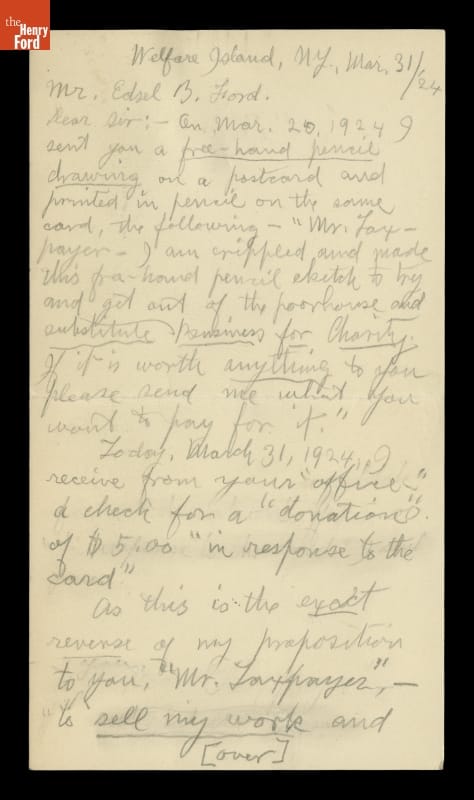 the
Henry
Ford
Welfare Island, NY., Mar. 31/'24
Mr. Edsel B. Ford.
Dear Sir:- On Mar. 20, 1924 I
sent you a free-hand pencil
drawing on a postcard and
printed in pencil on the same
card, the following - "Mr. Tax-
payer - I am crippled and made
this fre-hand pencil sketch to try
and get out of the poorhouse and
substitute Business for Charity.
If it is worth anything to you
please send me what you
want to pay for it."
Today, March 31, 1924, I
receive from your "office"
a check for a "donation"
of $5.00 "in response to the
card"
As this is the exact
reverse of my proposition
to you, "Mr. Taxpayer", -
to "sell my work and
[over]